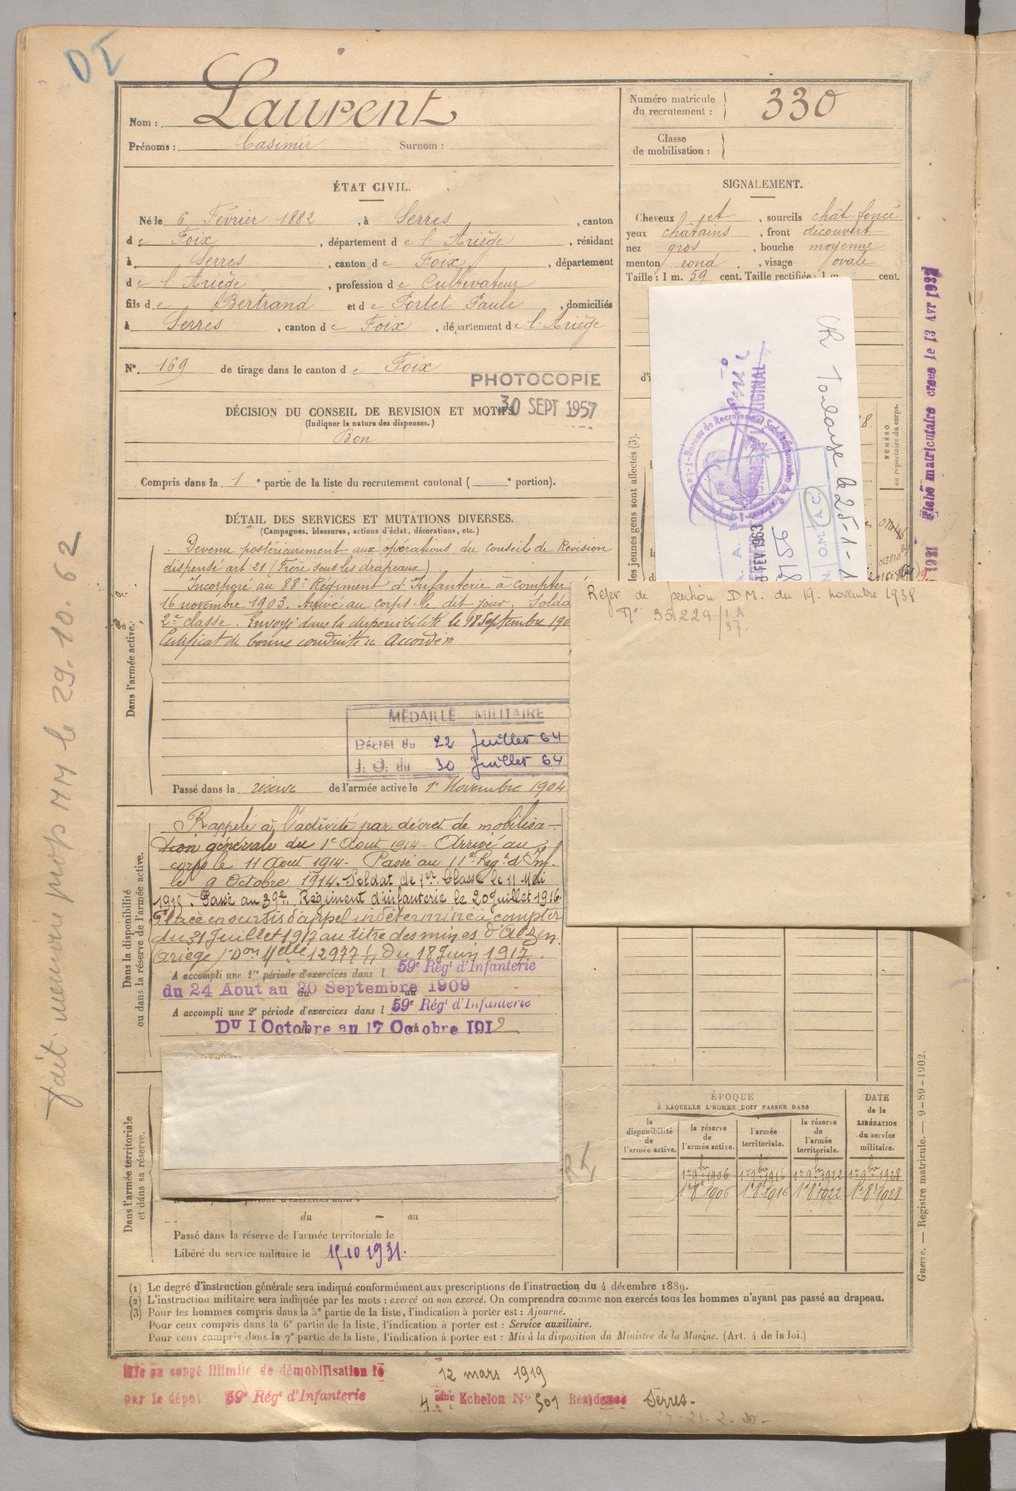 Nom : Laurent
Prénoms : Casimir Surnom :
Numéro matricule du recrutement : 330
Classe de mobilisation :
ÉTAT CIVIL.
Né le 6 Février 1882, à Serres, canton
de Foix, département de l'Ariège, résidant
à Serres, canton de Foix, département
de l'Ariège, profession de Cultivateur
fils de Bertrand et de Portet Paule, domiciliés
à Serres, canton de Foix, département de l'Ariège
N° 169 de tirage dans le canton de Foix
PHOTOCOPIE
30 SEPT 1957
DÉCISION DU CONSEIL DE REVISION ET MOTIFS
(Indiquer la nature des dispenses.)
Bon
Compris dans la 1e partie de la liste du recrutement cantonal ( e portion).
SIGNALEMENT.
Cheveux et, sourcils chât foncé
yeux châtains, front découvert
nez gros, bouche moyenne
menton rond, visage ovale
Taille : 1 m. 59 cent. Taille rectifiée : 1 m. cent.
CR Toulouse le 25-1-1
Bureau de Recrutement
ORIGINAL
FEV 1963
8156
A. A.
O.M. A.C.
jeunes gens sont affectés (3).
NUMÉRO
au répertoire du corps.
Fiche matriculaire créée le 13 Avr 193
DÉTAIL DES SERVICES ET MUTATIONS DIVERSES.
(Campagnes, blessures, actions d'éclat, décorations, etc.)
Dans l'armée active.
Devenu postérieurement aux opérations du conseil de Révision
dispensé art. 21 (Frère sous les drapeaux)
Incorporé au 88e Régiment d'Infanterie à compter
16 novembre 1903. Arrivé au corps le dit jour. Solda
2e classe. Envoyé dans la disponibilité le 18 Septembre 190
Certificat de bonne conduite Accordé
MÉDAILLE MILITAIRE
Décret du 22 Juillet 64
J. O. du 30 Juillet 64
Passé dans la réserve de l'armée active le 1er Novembre 1904
Refer de pension D.M. du 19 novembre 1938
N° 35229
Dans la disponibilité
ou dans la réserve de l'armée active.
Rappelé à l'activité par décret de mobilisa-
tion générale du 1er Août 1914. Arrivé au
corps le 11 Août 1914. Passé au 11e Régt d'Inf.
le 9 Octobre 1914. Soldat de 1ère Classe le 11 Mai
1915. Passé au 39e Régiment d'infanterie le 20 juillet 1916
Placé en sursis d'appel indéterminé à compter
du 31 Juillet 1917 au titre des mines d'Alzen
(Ariège) Don Mlle 12977 du 18 Juin 1917.
A accompli une 1re période d'exercices dans l 59e Régt d'Infanterie
du 24 Aout au 20 Septembre 1909
A accompli une 2e période d'exercices dans l 59e Régt d'Infanterie
Du 1 Octobre au 17 Octobre 1912
Dans l'armée territoriale
et dans sa réserve.
du au
Passé dans la réserve de l'armée territoriale le
Libéré du service militaire le 15.10 1931.
ÉPOQUE
À LAQUELLE L'HOMME DOIT PASSER DANS
la disponibilité de l'armée active.
la réserve de l'armée active.
l'armée territoriale.
la réserve de l'armée territoriale.
DATE de la LIBÉRATION du service militaire.
1er 9bre 1906 1er 9bre 1916 1er 9bre 1922 1er 9bre 1928
1er 8bre 1906 1er 8bre 1916 1er 8bre 1922 1er 8bre 1928
(1) Le degré d'instruction générale sera indiqué conformément aux prescriptions de l'instruction du 4 décembre 1889.
(2) L'instruction militaire sera indiquée par les mots : exercé ou non exercé. On comprendra comme non exercés tous les hommes n'ayant pas passé au drapeau.
(3) Pour les hommes compris dans la 5e partie de la liste, l'indication à porter est : Ajourné.
Pour ceux compris dans la 6e partie de la liste, l'indication à porter est : Service auxiliaire.
Pour ceux compris dans la 7e partie de la liste, l'indication à porter est : Mis à la disposition du Ministre de la Marine. (Art. 4 de la loi.)
Guerre. — Registre matricule. — 9-89-1902.
Mis en congé illimité de démobilisation le 12 mars 1919
par le dépôt 59e Régt d'Infanterie 4ème Echelon No 501 Résidence Serres
fait memoire prop MM le 29.10.62